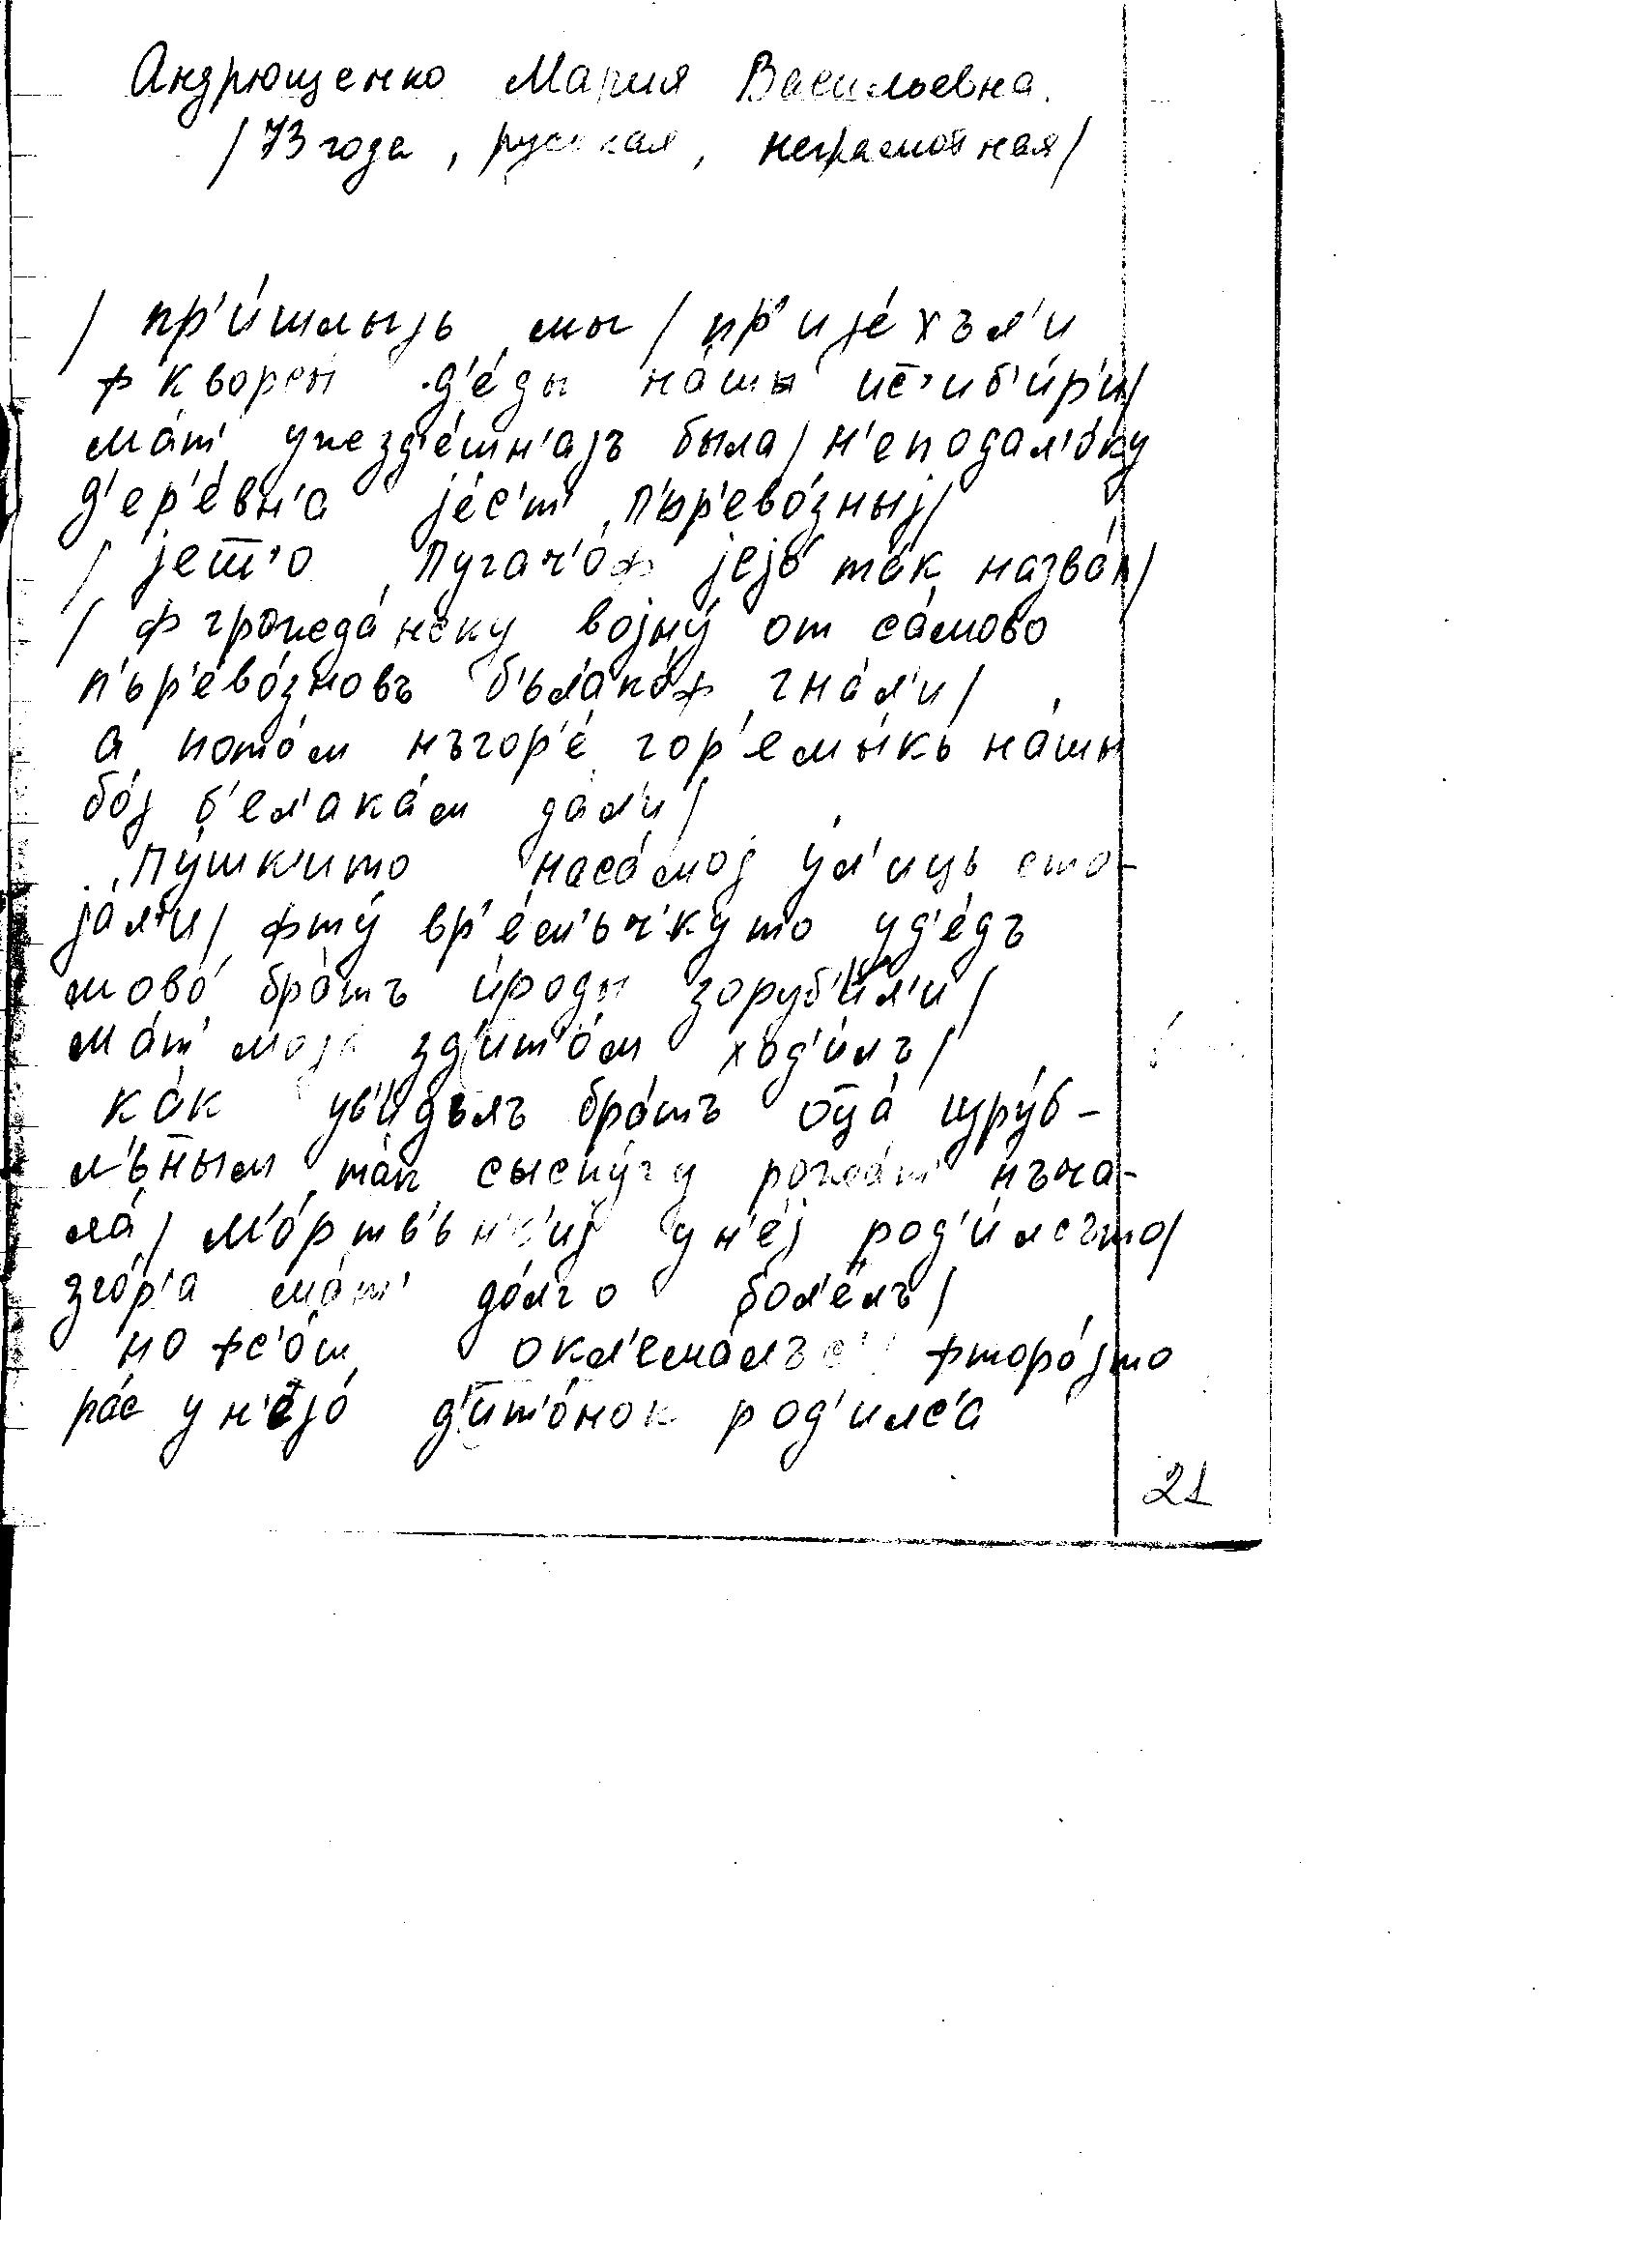 Андрющенко Мария Васильевна.
/73 года, русская, неграмотная/
/ пр'и́шлыjь мы / пр'иjе́хъл'и
д'е́ды на́шы ис̅'иб'и́р'и/
ма́т' ужезд'е́шн'аjъ была/ н'еподал'о́ку
д'ер'е́вн'а jе́с'т' п'ьр'ево́зныj/
/ jет̅'о Пугач'о́ф jеjо́ та́к назва́л/
/ ф гражда́нску воjну́ от са́мово
п'ьр'ево́зновъ б'ьл'ако́ф гна́л'и/
а пото́м нъгор'е́ гор'емы́къ на́шы
бо́j б'ел'ака́м да́л'и/
Пу́шк'ито наса́моj у́л'иць сто-
jа́л'и/ фту́ вр'е́м'ьч'куто уд'е́дъ
мово́ бра́тъ и́роды заруб'и́л'и/
ма́т' моjа зд'ит'о́м ход'и́лъ/
ка́к ув'и́дьлъ бра́тъ оц̅а́ изру́б-
л'ьн̅ым та́к сыспу́гу рожа́т' нъча-
ла́/ м'о́ртв'ьн'к'иj ун'е́j род'и́лсъто/
зго́р'а ма́т' до́лго бол'е́лъ/
но фс'о́ш окл'ема́лъс' фторо́jто
ра́с ун'еjо́ д'ит'о́нок род'илс'а
21